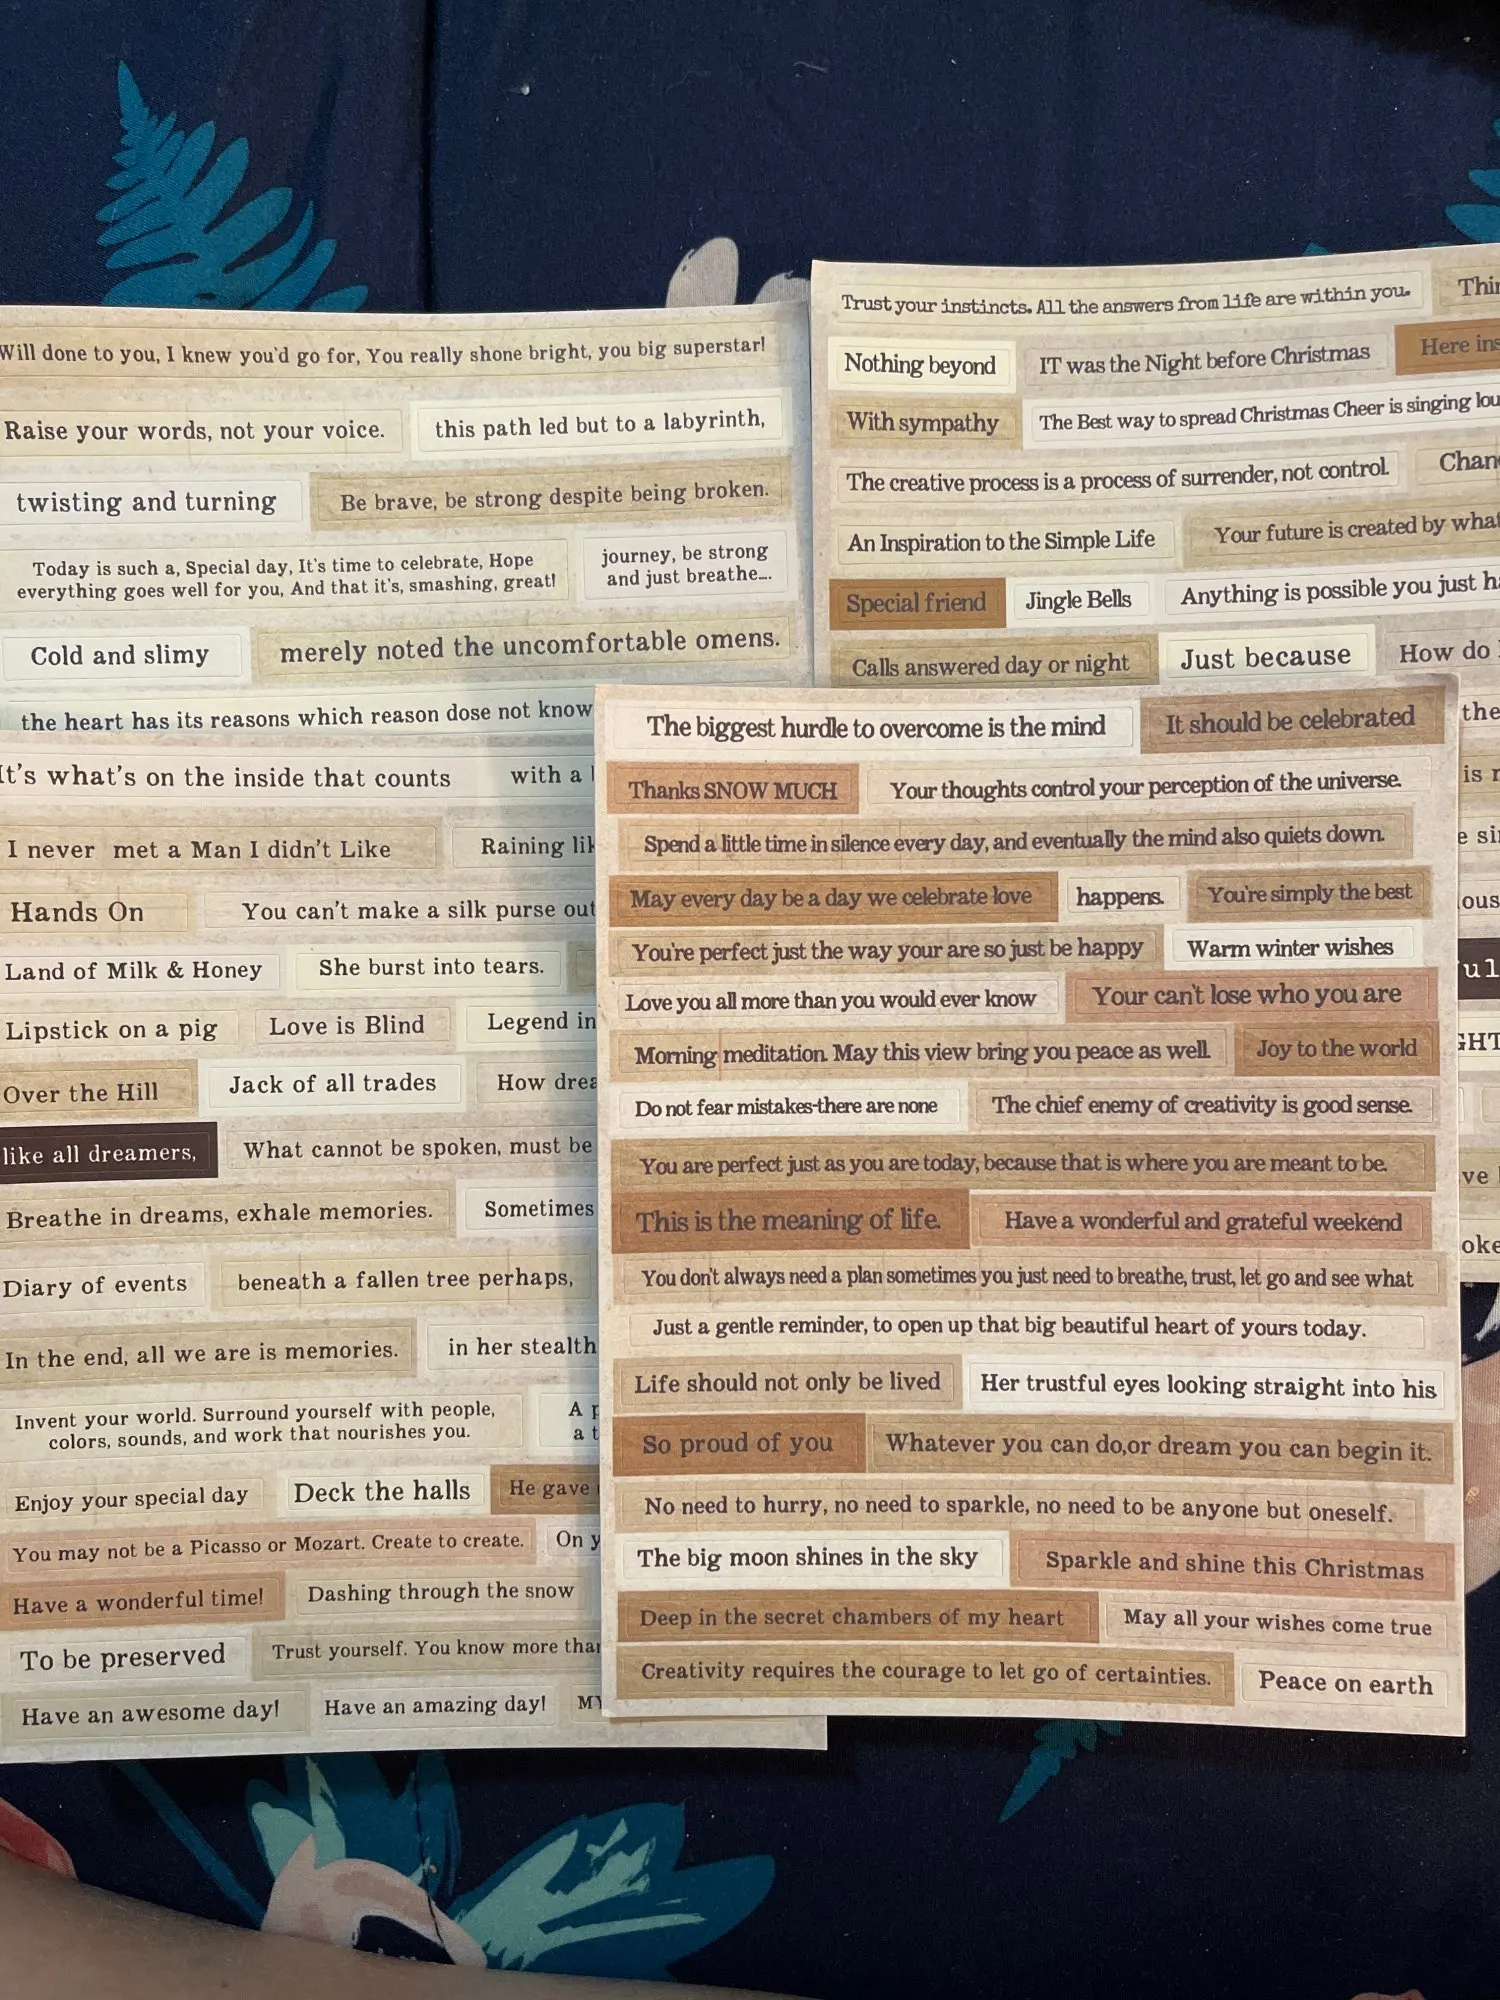 Will done to you, I knew you'd go for, You really shone bright, you big superstar!
Raise your words, not your voice.
this path led but to a labyrinth,
twisting and turning
Be brave, be strong despite being broken.
Today is such a, Special day, It's time to celebrate, Hope
everything goes well for you, And that it's, smashing, great!
journey, be strong
and just breathe....
Cold and slimy
merely noted the uncomfortable omens.
the heart has its reasons which reason dose not know
It's what's on the inside that counts
with a
I never met a Man I didn't Like
Raining
Hands On
You can't make a silk purse out
Land of Milk & Honey
She burst into tears.
Lipstick on a pig
Love is Blind
Legend in
Over the Hill
Jack of all trades
How
like all dreamers,
What cannot be spoken, must be
Breathe in dreams, exhale memories.
Sometimes
Diary of events
beneath a fallen tree perhaps,
In the end, all we are is memories.
in her stealth
Invent your world. Surround yourself with people,
colors, sounds, and work that nourishes you.
A
a
Enjoy your special day
Deck the halls
He gave
You may not be a Picasso or Mozart. Create to create.
On
Have a wonderful time!
Dashing through the snow
To be preserved
Trust yourself. You know more than
Have an awesome day!
Have an amazing day!
MY
Trust your instincts. All the answers from life are within you.
Nothing beyond
IT was the Night before Christmas
Here
With sympathy
The Best way to spread Christmas Cheer is singing
The creative process is a process of surrender, not control.
An Inspiration to the Simple Life
Your future is created by what
Special friend
Jingle Bells
Anything is possible you just
Calls answered day or night
Just because
How do
the
is
The biggest hurdle to overcome is the mind
It should be celebrated
Thanks SNOW MUCH
Your thoughts control your perception of the universe.
Spend a little time in silence every day, and eventually the mind also quiets down.
May every day be a day we celebrate love
happens.
You're simply the best
You're perfect just the way your are so just be happy
Warm winter wishes
Love you all more than you would ever know
Your can't lose who you are
Morning meditation. May this view bring you peace as well.
Joy to the world
Do not fear mistakes-there are none
The chief enemy of creativity is good sense.
You are perfect just as you are today, because that is where you are meant to be.
This is the meaning of life.
Have a wonderful and grateful weekend
You don't always need a plan sometimes you just need to breathe, trust, let go and see what
Just a gentle reminder, to open up that big beautiful heart of yours today.
Life should not only be lived
Her trustful eyes looking straight into his
So proud of you
Whatever you can do,or dream you can begin it.
No need to hurry, no need to sparkle, no need to be anyone but oneself.
The big moon shines in the sky
Sparkle and shine this Christmas
Deep in the secret chambers of my heart
May all your wishes come true
Creativity requires the courage to let go of certainties.
Peace on earth